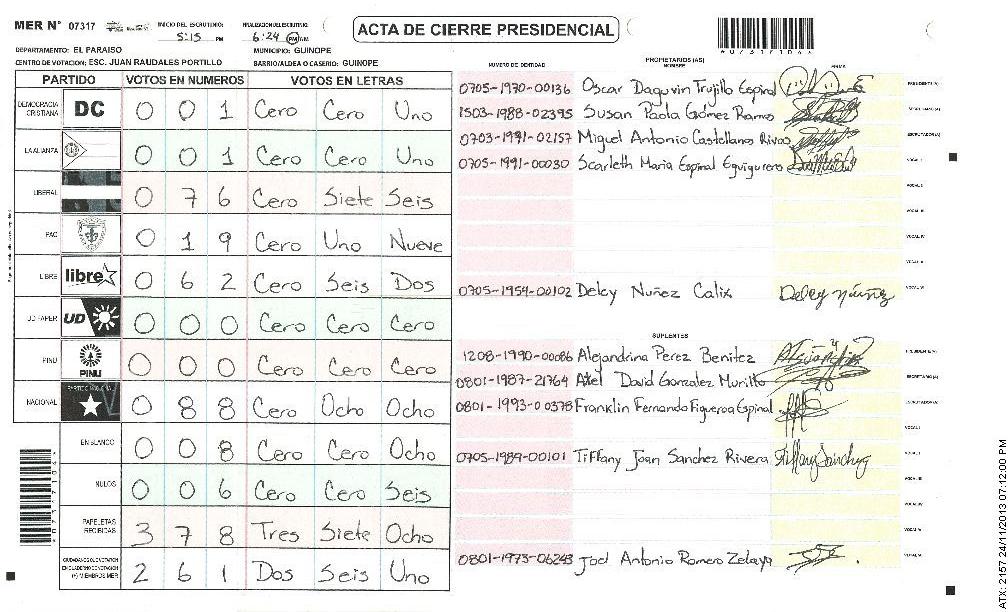 MER N° 07317 INICIO DEL ESCRUTINIO: 5:15 PM FINALIZACION ESCRUTINIO: 6:24 PM AM
ACTA DE CIERRE PRESIDENCIAL
DEPARTAMENTO: EL PARAISO MUNICIPIO: GUINOPE
CENTRO DE VOTACION: ESC. JUAN RAUDALES PORTILLO BARRIO/ALDEA O CASERIO: GUINOPE
PARTIDO VOTOS EN NUMEROS VOTOS EN LETRAS
DEMOCRACIA CRISTIANA DC 0 0 1 Cero Cero Uno
LA ALIANZA 0 0 1 Cero Cero Uno
LIBERAL 0 7 6 Cero Siete Seis
PAC 0 1 9 Cero Uno Nueve
LIBRE libre 0 6 2 Cero Seis Dos
UD FAPER UD 0 0 0 Cero Cero Cero
PINU PINU 0 0 0 Cero Cero Cero
NACIONAL 0 8 8 Cero Ocho Ocho
EN BLANCO 0 0 8 Cero Cero Ocho
NULOS 0 0 6 Cero Cero Seis
PAPELETAS RECIBIDAS 3 7 8 Tres Siete Ocho
(+) MIEMBROS MER 2 6 1 Dos Seis Uno
PROPIETARIOS (AS)
NUMERO DE IDENTIDAD NOMBRE FIRMA
0705-1970-00136 Oscar Daquvin Trujillo Espinal PRESIDENTE (A)
1503-1988-02395 Susan Paola Gómez Ramo SECRETARIO (A)
0703-1991-02157 Miguel Antonio Castellano Rivas ESCRUTADOR (A)
0705-1991-00030 Scarleth Maria Espinal Eguigurero VOCAL I
VOCAL II
VOCAL III
VOCAL IV
VOCAL V
0705-1954-00102 Delcy Nuñez Calix Delcy Núñez VOCAL VI
SUPLENTES
1208-1990-00086 Alejandrina Perez Benitez PRESIDENTE (A)
0801-1987-21764 Axel David Gonzalez Murillo SECRETARIO (A)
0801-1993-00378 Franklin Fernando Figueroa Espinal ESCRUTADOR (A)
VOCAL I
0705-1989-00101 Tiffany Joan Sanchez Rivera Tiffany Sánchez VOCAL II
VOCAL III
VOCAL IV
VOCAL V
0801-1973-06243 Joel Antonio Romero Zelaya VOCAL VI
ATX: 2157 24/11/2013 07:12:00 PM